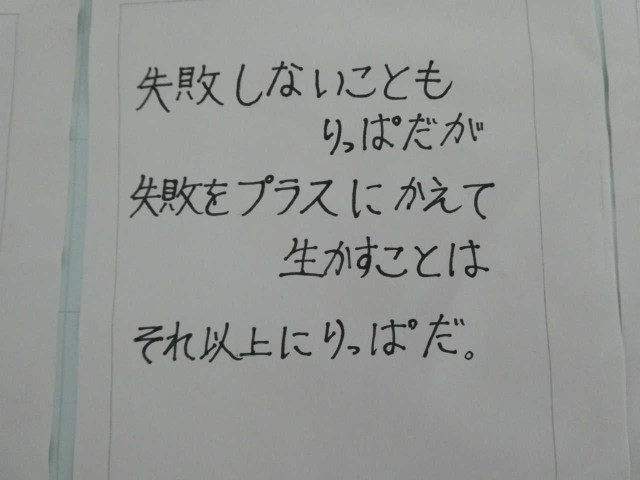 失敗しないことも
りっぱだが
失敗をプラスにかえて
生かすことは
それ以上にりっぱだ。